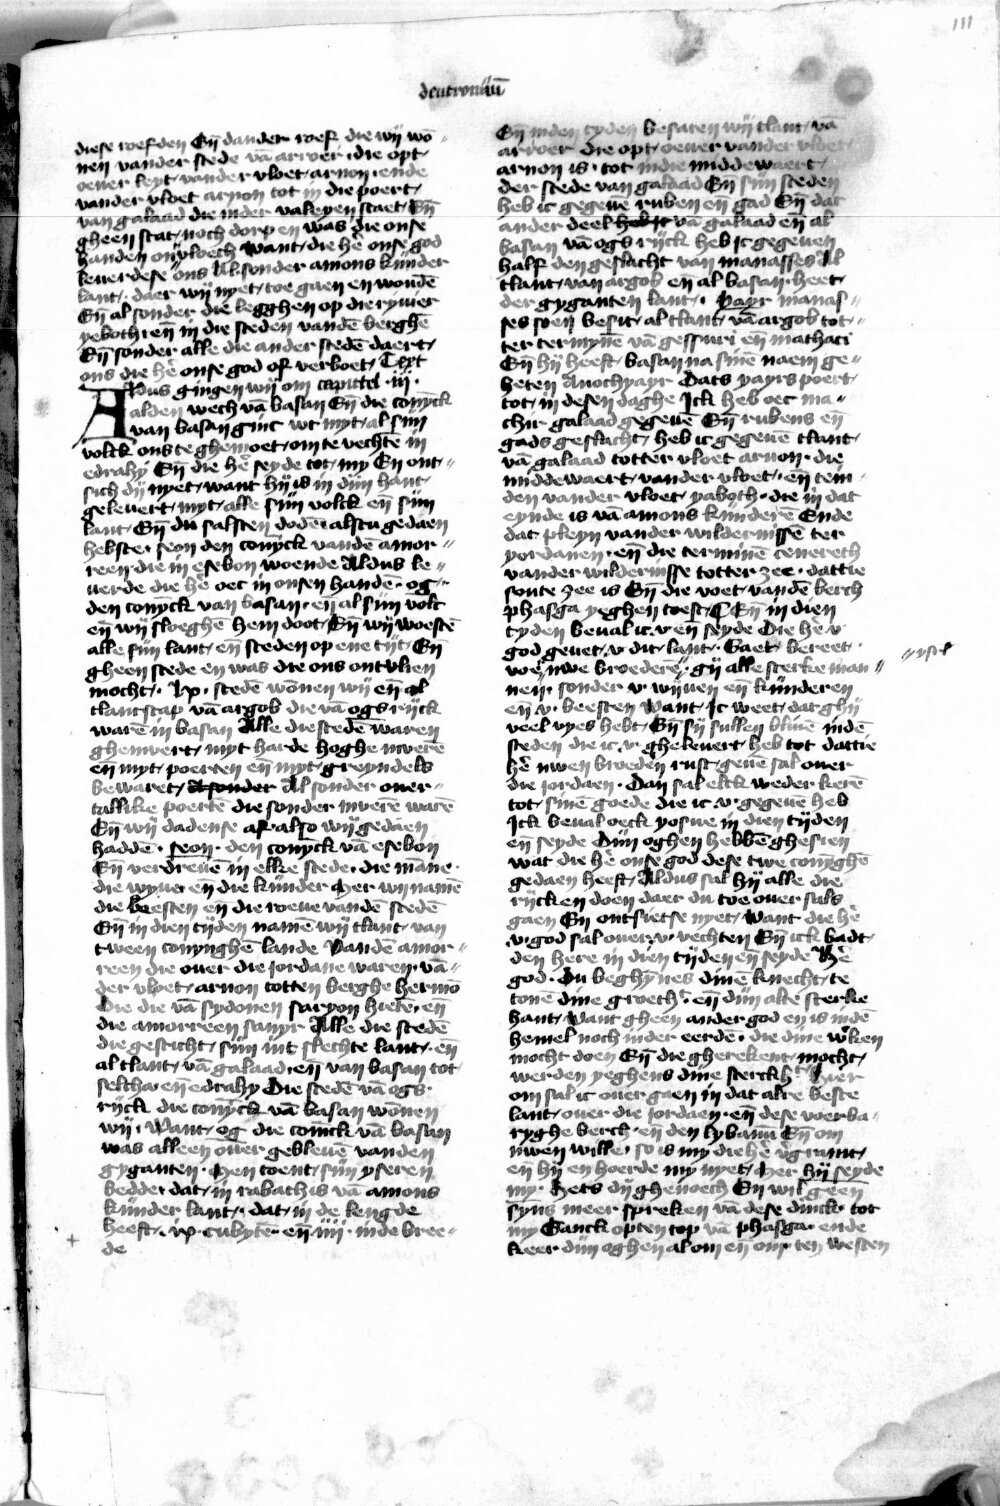 111
deutronimū
diese roefden Eñ dander roef die wij wō-
nen vander stede vā arroer die opt
oeuer leyt vander vloet arnon ende
vander vloet arnon tot in die poert
van galaad die inder valeyen staet Eñ
gheen stat noch dorp en was die onse
handen ontvloech want die hē onse god
leuerdese ons Al sonder amons kijnder
lant daer wij nyet toe gaen en wondē
Eñ al sonder die legghen op die ryuier
yeboth eñ in die steden vandē berghē
Eñ sonder alle die ander stedē daert
ons die hē onse god of verboet Text
Aldus gingen wij om capittel iij
alden wech vā basan Eñ die conyck
van basan ginc wt myt al sijn
volck ons te ghemoet om te vechte in
edrahy Eñ die hē seyde tot my En ont-
sich dij nyet want hij is in dijn hant
geleuert myt alle sijn volck eñ sijn
lant Eñ du salsten doden alstu gedaen
hebste seon den conyck vandē amor-
reen die in esebon woende Aldus le-
uerde die hē oec in onsen handē og
den conyck van basan eñ al sijn volc
eñ wij sloeghē hem doot Eñ wij woestē
alle sijn lant eñ steden op ene tijt Eñ
gheen stede en was die ons ontvlien
mocht lx stedē wonnen wij eñ al
tlantscap vā argob die vā ogs rijck
warē in basan Alle die stedē waren
ghemuert myt harde hoghe muerē
eñ myt poerten eñ myt greyndels
bewaret Al sonder ouer-
tallike poertē die sonder muerē warē
Eñ wij dadense af also wij gedaen
haddē seon den conyck vā esebon
Eñ verdreuē in elke stede die manē
die wyue eñ die kijnder Mer wij namē
die beesten eñ die roeue vandē stedē
Eñ in dien tijden namē wij tlant van
tween conynghē lande vandē amor-
reen die ouer die jordane waren vā-
der vloet arnon totten berghe hermō
Die die vā sydonen saryon hietē eñ
die amorreen sanyr Alle die stedē
die gesticht sijn int slechte lant eñ
al tlant vā galaad eñ van basan tot
seltha eñ edrahy Die stedē vā ogs
rijck die conyck vā basan wonen
wij Want og die conick vā basan
was alleen ouer gebleuē vanden
gyganten Men toent sijn yseren
bedde dat in rabath is vā amons
kijnder lant dat in de lengde
heeft ix cubytē eñ iiij in de bree-
de
Eñ inden tyden besaten wij tlant vā
arroer die opt oeuer vander vloet
arnon is tot in die middewaert
der stede van galaad Eñ sijn steden
heb ic gegeuē ruben eñ gad Eñ dat
ander deel heb ic vā galaad eñ al
basan vā ogs rijck heb ic gegeuen
half den geslacht van manasses Al
tlant van argob eñ al basan heet
der gyganten lant Yayr manas-
ses soen besit al tlant vā argob tot
ter termynē vā gessuri eñ mathati
Eñ hij heeft basan na sinē naem ge-
heten Anochyayr Dats yayrs poert
tot in desen daghe Ick heb oec ma-
chir galaad gegeuē Eñ rubens eñ
gads geslacht heb ic gegeuē tlant
vā galaad totter vloet arnon die
middewaert vander vloet eñ tein-
den vander vloet yaboth die in dat
eynde is vā amons kijnderē Ende
dat pleyn vander wildernissē ter
yordanen eñ die terminē cenereth
vander wildernisse totter zee dattie
soute zee is Eñ die voet vandē berch
phasga yeghen toest Eñ in dien
tyden beual ic v eñ seyde Die hē v
god geuet v dit lant Gaet bereet
voer uwe broederē gij alle sterke man-
nen sonder v wijuen eñ kijnderen
eñ v beesten Want Ic weet dat ghij
veel vyes hebt Eñ sij sullen bliuē indē
steden die ic v gheleuert heb tot dattie
hē uwen brueden rust geuē sal ouer
die jordaen Dan sal elck weder kerē
tot sinē goede die ic v gegeuē heb
Ick beual oeck yosue in dien tijden
eñ seyde Dijn oghen hebbē ghesien
wat die hē onse god dese twe conynghē
gedaen heeft Aldus sal hij alle die
rijcken doen daer du toe ouer sals
gaen En ontsietse nyet Want die hē
v god sal ouer v vechten Eñ ick badt
den here in dien tijden eñ seyde Hē
god Du beghynnes dinē knecht te
tonē dine groecht eñ dijn alte sterke
hant Want gheen ander god en is indē
hemel noch inder eerdē die dine wken
mocht doen Eñ die gherekent mocht
werden yeghens dine sterckh Hier
om sal ic ouer gaen in dat alre beste
lant ouer die jordaen eñ dese voerba-
ryghe berch eñ den lybanū Eñ om
uwen wille so is my die hē vgramt
eñ hij en hoerde my nyet Mer hij seyde
my Hets dij ghenoech En wil geen
syns meer spreken vā dese dinck tot
my Ganck opten top vā phasga ende
keer dijn oghen al om eñ om ten westen